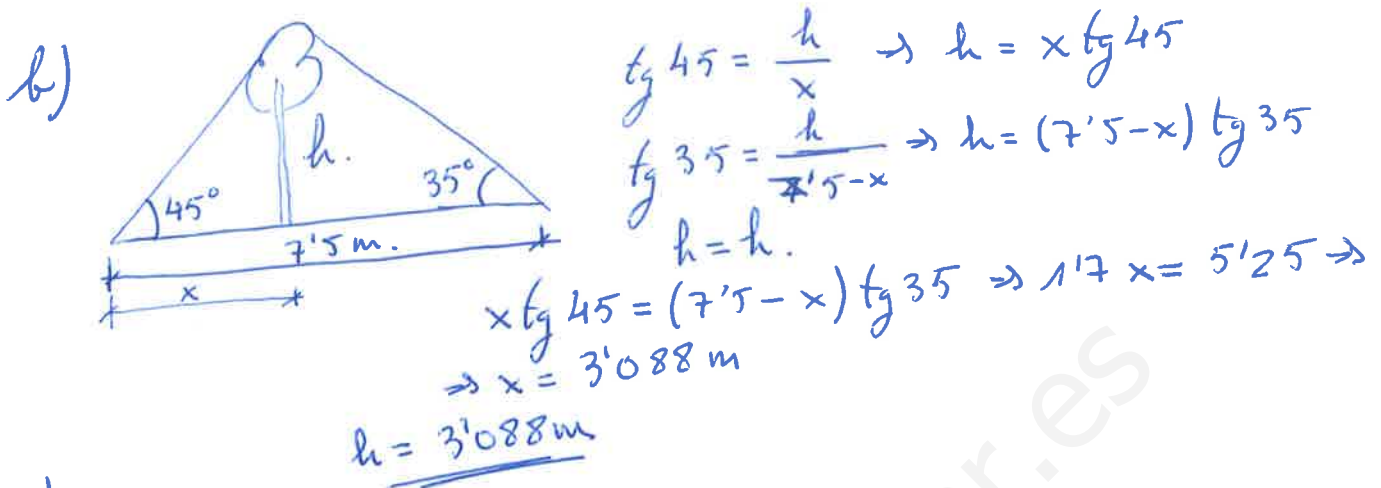 b)
h.
45°
35°
7'5 m.
x
tg 45 = h/x → h = x tg 45
tg 35 = h/7'5-x ⇒ h = (7'5-x) tg 35
h = h.
x tg 45 = (7'5-x) tg 35 ⇒ 1'7 x = 5'25 ⇒
⇒ x = 3'088 m
h = 3'088 m